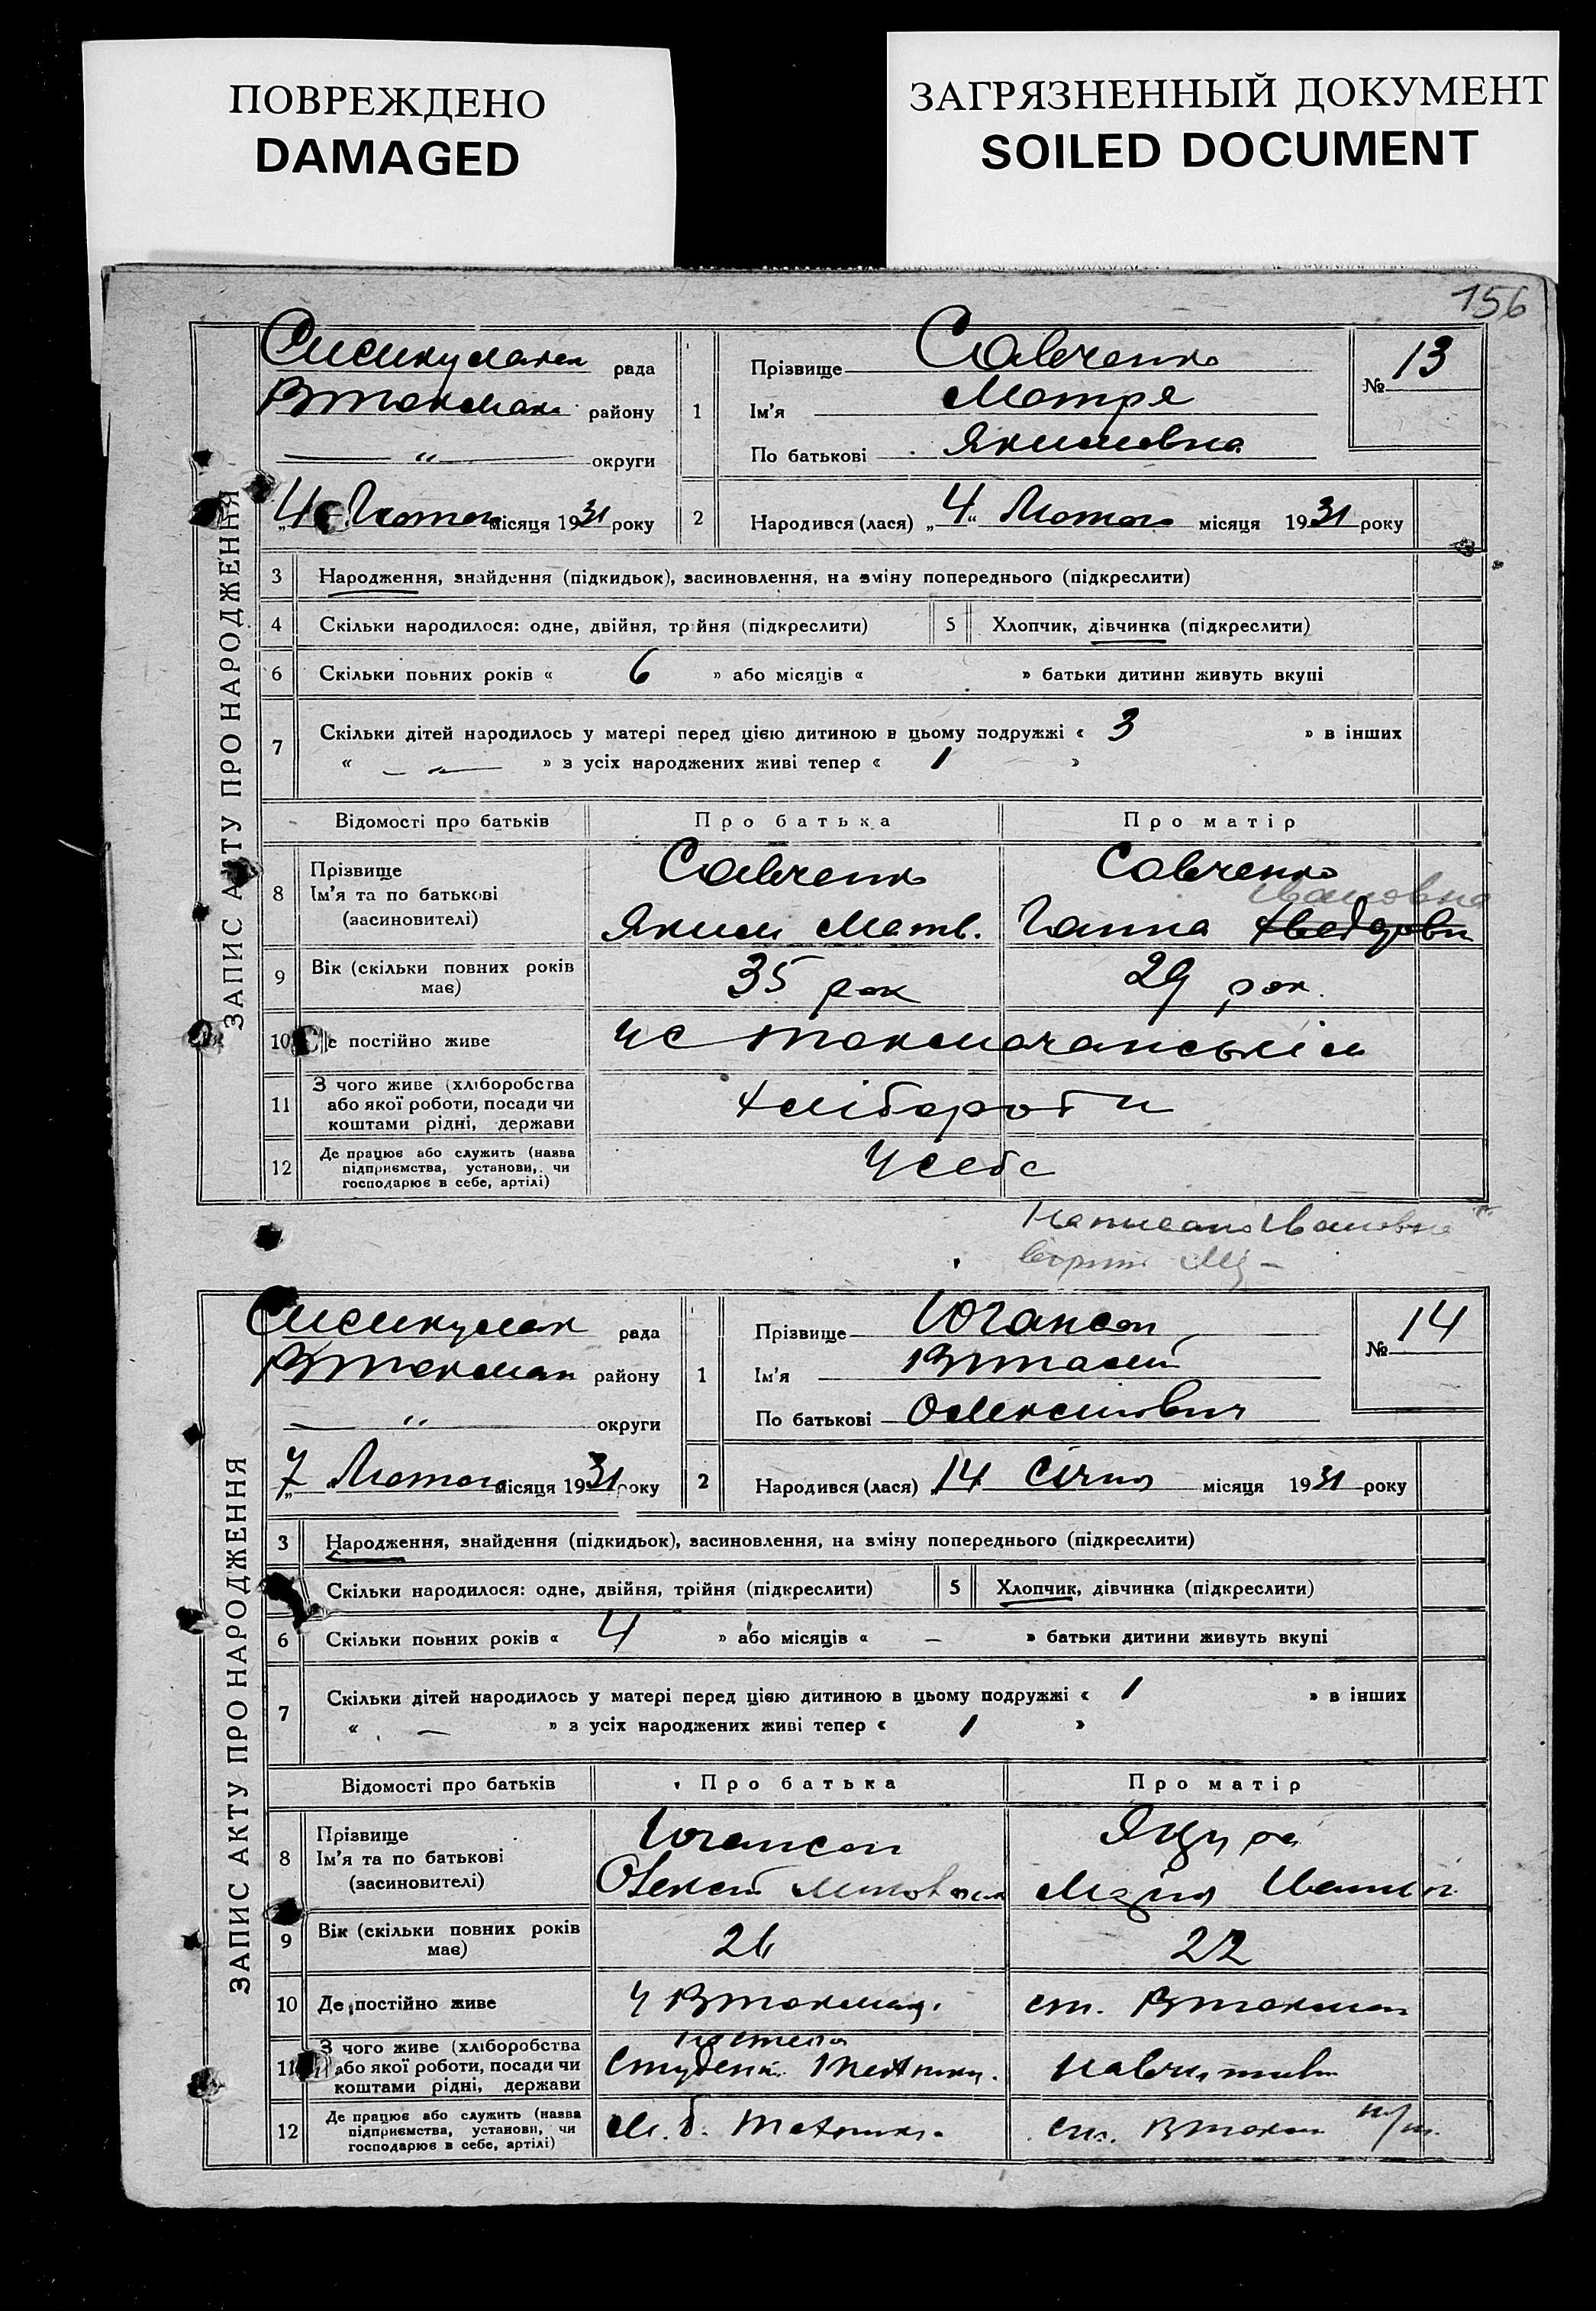 ПОВРЕЖДЕНО
DAMAGED
ЗАГРЯЗНЕННЫЙ ДОКУМЕНТ
SOILED DOCUMENT
156
ЗАПИС АКТУ ПРО НАРОДЖЕННЯ
рада
района Втокмак району
— " — округи
4 Лютого місяця 1931 року
1
Прізвище Савченко
Ім'я Мотря
По батькові Якимовна
№ 13
2
Народився (лася) „4" Лютого місяця 1931 року
3 Народження, знайдення (підкидьок), засиновлення, на зміну попереднього (підкреслити)
4 Скільки народилося: одне, двійня, трійня (підкреслити)
5 Хлопчик, дівчинка (підкреслити)
6 Скільки повних років « 6 » або місяців « » батьки дитини живуть вкупі
7 Скільки дітей народилось у матері перед цією дитиною в цьому подружжі « 3 » в інших
« — " — » з усіх народжених живі тепер « 1 »
Відомості про батьків Про батька Про матір
8 Прізвище
Ім'я та по батькові
(засиновителі)
Савченко
Яким Матв.
Савченко
Ивановна
Ганна
9 Вік (скільки повних років
має)
35 рок
29 рок.
10 Де постійно живе
У С Токмачанським
11 З чого живе (хліборобства
або якої роботи, посади чи
коштами рідні, держави
12 Де працює або служить (назва
підприємства, установи, чи
господарює в себе, артілі)
У себе
Написано Ивановна
ЗАПИС АКТУ ПРО НАРОДЖЕННЯ
рада
Втокмак району
— " — округи
7 Лютого місяця 1931 року
1
Прізвище Югансон
Ім'я Віталій
По батькові Олексійович
№ 14
2
Народився (лася) 14 Січня місяця 1931 року
3 Народження, знайдення (підкидьок), засиновлення, на зміну попереднього (підкреслити)
Скільки народилося: одне, двійня, трійня (підкреслити)
5 Хлопчик, дівчинка (підкреслити)
6 Скільки повних років « 4 » або місяців « — » батьки дитини живуть вкупі
7 Скільки дітей народилось у матері перед цією дитиною в цьому подружжі « 1 » в інших
« — » з усіх народжених живі тепер « 1 »
Відомості про батьків Про батька Про матір
8 Прізвище
Ім'я та по батькові
(засиновителі)
Югансон
Олексій
Марія
9 Вік (скільки повних років
має)
26
22
10 Де постійно живе
У Втокмаці
ст. Втокмак
11 З чого живе (хліборобства
або якої роботи, посади чи
коштами рідні, держави
Студент
12 Де працює або служить (назва
підприємства, установи, чи
господарює в себе, артілі)
ст. Втокмак